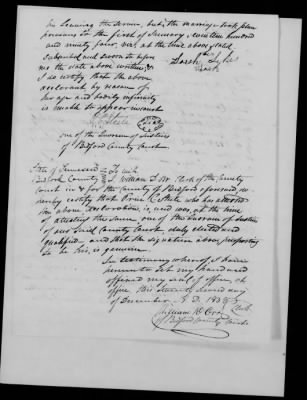 his leaving the service, but the marriage took place
previous to the first of January, seventeen hundred
and ninety four, viz. at the time above stated
Subscribed and sworn to before
me the date above written, &
I do certify that the above
declarant by reason of
her age and bodily infirmity
is unable to appear in court
Sarah her Lyle
mark
one of the Quorum of Justices
of Bedford County
State of Tennessee To wit
Bedford County I William Clerk of the County
Court in & for the County of Bedford aforesaid, do
hereby certify that who has attested
the above declaration, is, and was, at the time
of attesting the same, one of the Quorum of Justices
of our said County Court, duly elected and
qualified, and that the signature above purporting
to be his, is genuine.
In testimony whereof I have
hereunto set my hand and
affixed my seal of office, at
office this twenty second day
of December A.D. 183
William Clerk
of Bedford County Court